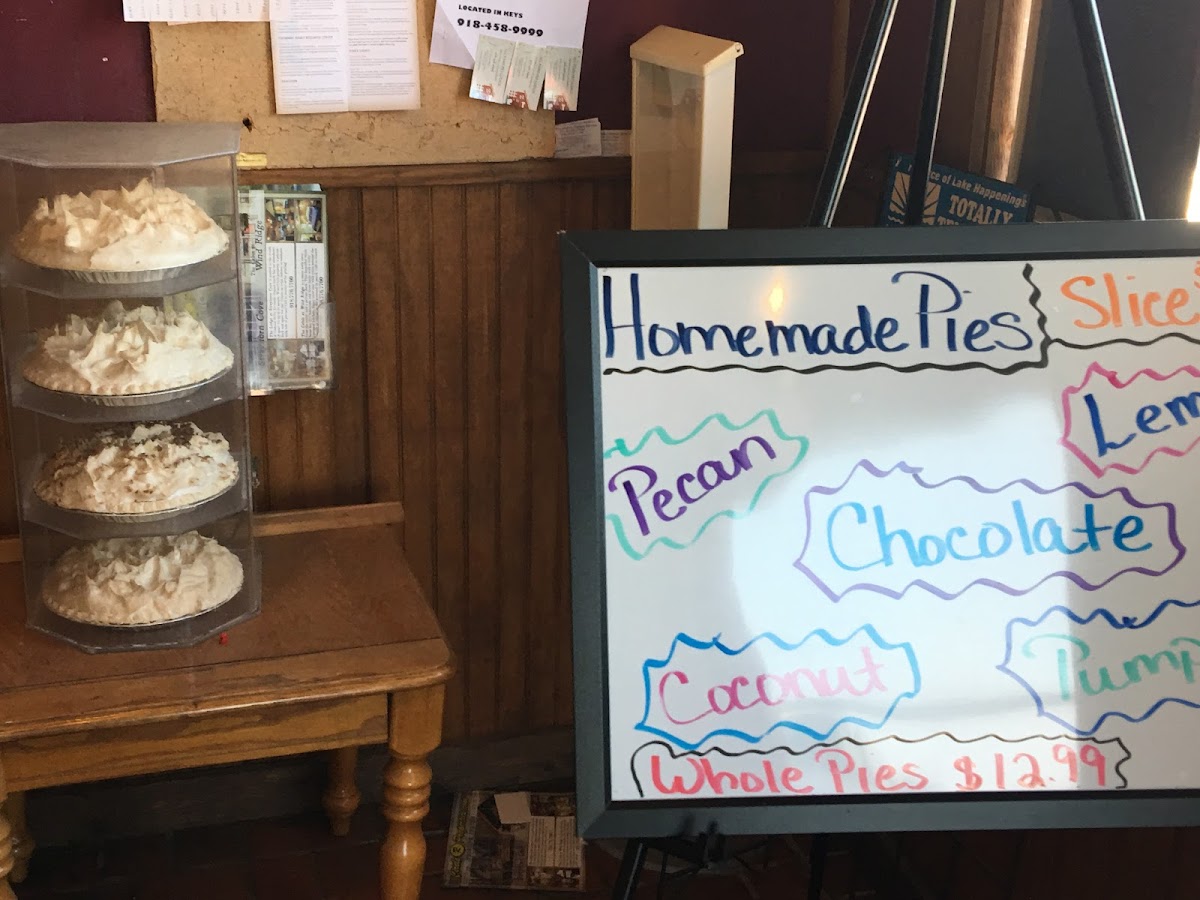 LOCATED IN KEYS
918-458-9999
Wind Ridge
ce of Lake Happening's
TOTALLY
Homemade Pies
Slice $
Lem
Pecan
Chocolate
Coconut
Pump
Whole Pies $12.99